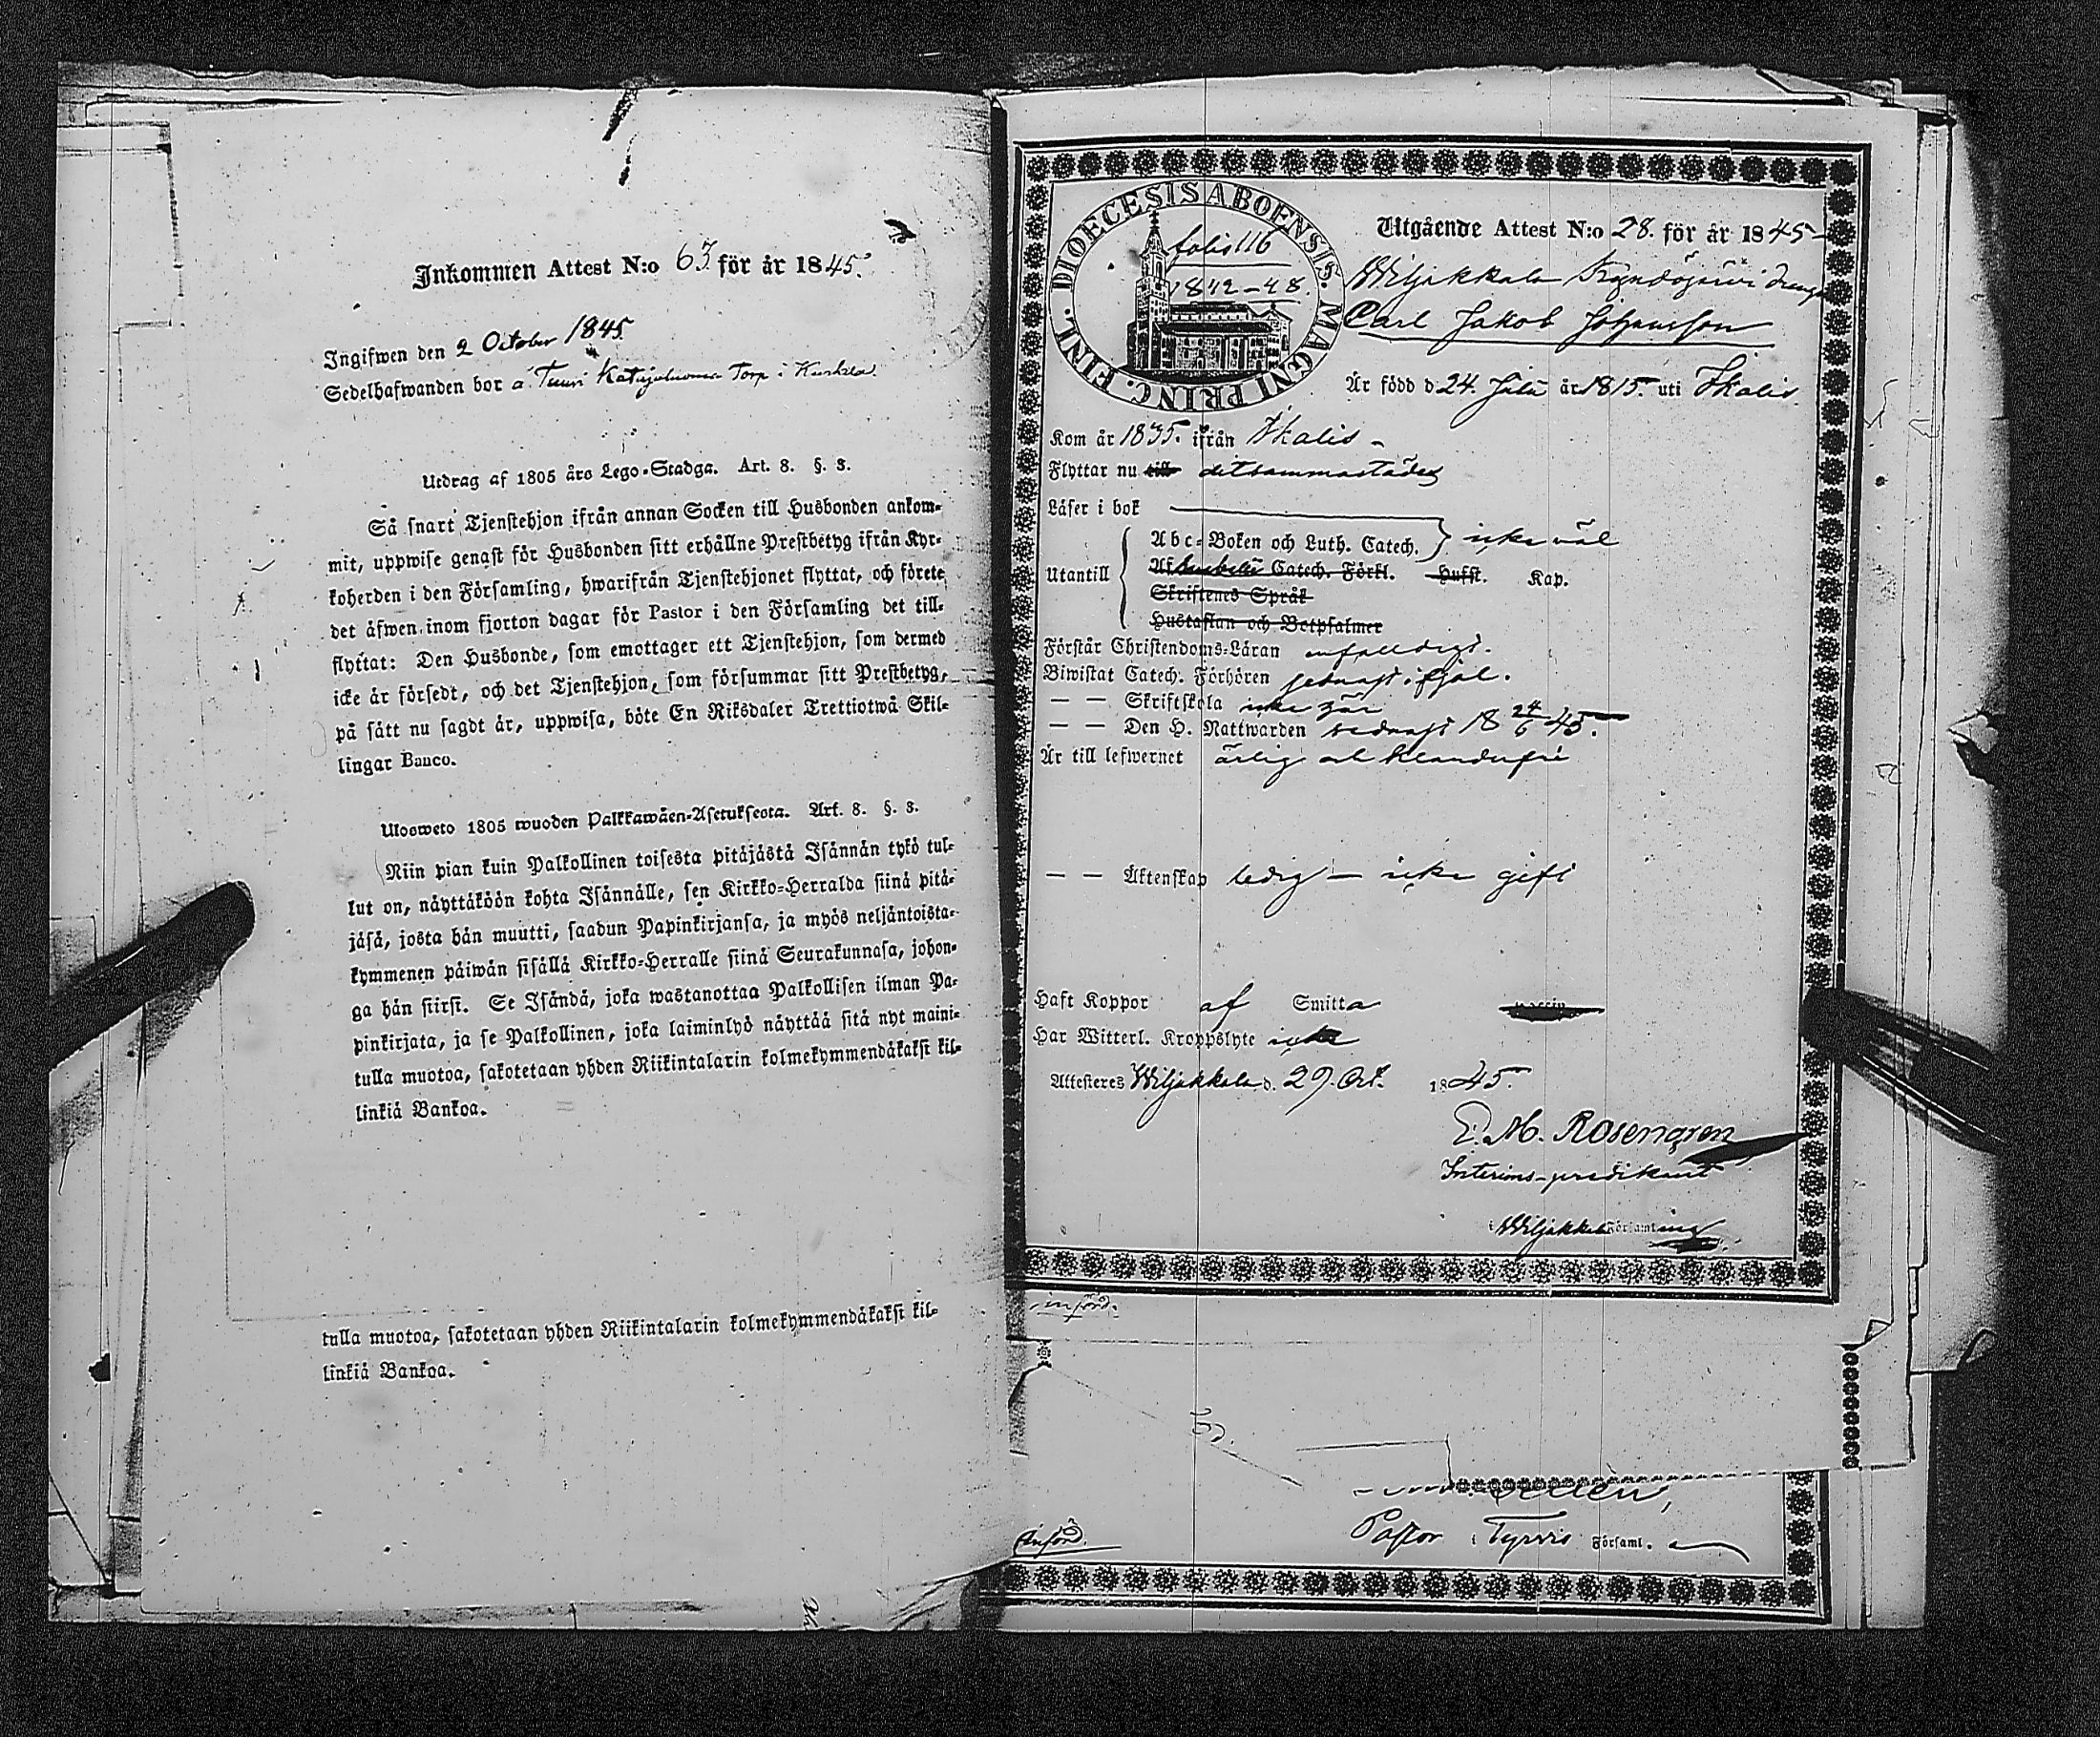 Inkommen Attest N:o 63. för år 1845.
Ingifwen den 2 October 1845
Sedelhafwanden bor å Tuuri Torp i
Utdrag af 1805 års Lego-Stadga. Art. 8. §. 8.
Så snart Tjenstehjon ifrån annan Socken till Husbonden ankom-
mit, uppwise genast för Husbonden sitt erhållne Prestbetyg ifrån Kyr-
koherden i den Församling, hwarifrån Tjenstehjonet flyttat, och förete
det äfwen inom fjorton dagar för Pastor i den Församling det till-
flyttat: Den Husbonde, som emottager ett Tjenstehjon, som dermed
icke är försedt, och det Tjenstehjon, som försummar sitt Prestbetyg,
på sått nu sagdt är, uppwisa, böte En Riksdaler Trettiotwå Skil-
lingar Banco.
Ulosweto 1805 wuoden Palkkawäen-Asetuksesta. Art. 8. §. 8.
Niin pian kuin Palkollinen toisesta pitäjästä Isännän tykö tul-
lut on, näyttäköön kohta Isännälle, sen Kirkko-Herralda siinä pitä-
jäsä, josta hän muutti, saadun Papinkirjansa, ja myös neljäntoista-
kymmenen päiwän sisällä Kirkko-Herralle siinä Seurakunnasa, johon-
ga hän siirsi. Se Isändä, joka wastanottaa Palkollisen ilman Pa-
pinkirjata, ja se Palkollinen, joka laiminlyö näyttää sitä nyt maini-
tulla muotoa, sakotetaan yhden Riikintalarin kolmekymmendäkaksi kil-
linkiä Bankoa.
tulla muotoa, sakotetaan yhden Riikintalarin kolmekymmendäkaksi kil-
linkiä Bankoa.
DIOECESIS ABOENSIS. MAGNI PRINC. FINL.
folio 116
1842-48.
Utgående Attest N:o 28. för år 1845
Wiljakkala drengen
Carl Jakob Johansson
Är född d 24. Julii år 1815. uti Ikalis.
Kom år 1835. ifrån Ikalis
Flyttar nu till ditsammastädes
Läser i bok
Utantill
Abc-Boken och Luth. Catech. icke väl
Catech. Förkl. Husst. Kap.
Skriftenes Språk
Hustaflan och Botpsalmer
Förstår Christendoms-Läran enfalldigt.
Biwistat Catech. Förhören sednast i fjol.
— — Skriftskola icke här
— — Den H. Nattwarden sednast 18 24/6 45.
Är till lefwernet ärlig och klanderfri
— — Äktenskap ledig — icke gift
Haft Koppor af Smitta
Har Witterl. Kroppslyte icke
Attesteres Wiljakkala d. 29. Oct. 1845.
E. M. Rosengren
Interims-predikant
i Wiljakkala Församling
införd.
införd.
Pastor i Tyrvis Församl.